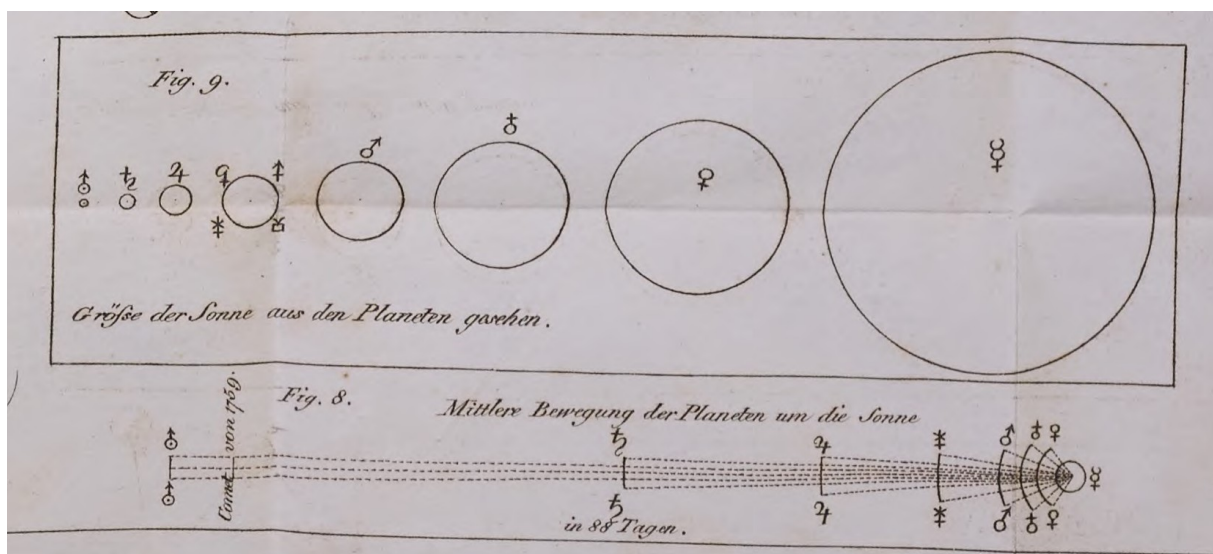 Fig. 9.
⛢ ♄ ♃ ⚳ ⚴ ♂ ♁ ♀ ☿
⚵ ⚶
Größe der Sonne aus den Planeten gesehen.
Fig. 8.
Mittlere Bewegung der Planeten um die Sonne
⛢ ♄ ♃ ⚵ ♂ ♁ ♀ ☿
Comet von 1769.
⛢ ♄ ♃ ⚵ ♂ ♁ ♀
in 88 Tagen.